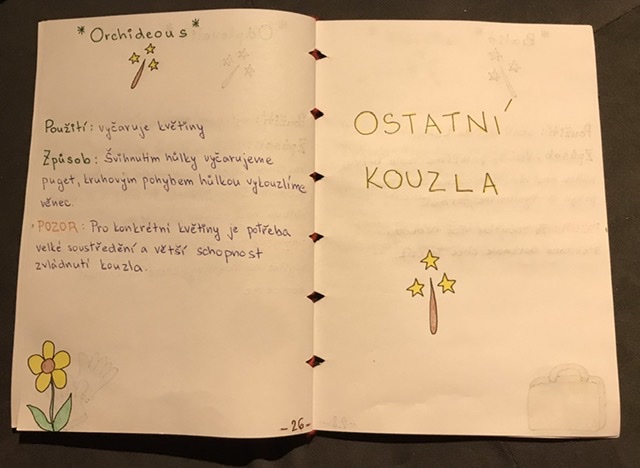 *Orchideous*
Použití: vyčaruje květiny
Způsob: Švihnutím hůlky vyčarujeme
puget, kruhovým pohybem hůlkou vykouzlíme
věnec.
POZOR: Pro konkrétní květiny je potřeba
velké soustředění a větší schopnost
zvládnutí kouzla.
-26-
OSTATNÍ
KOUZLA